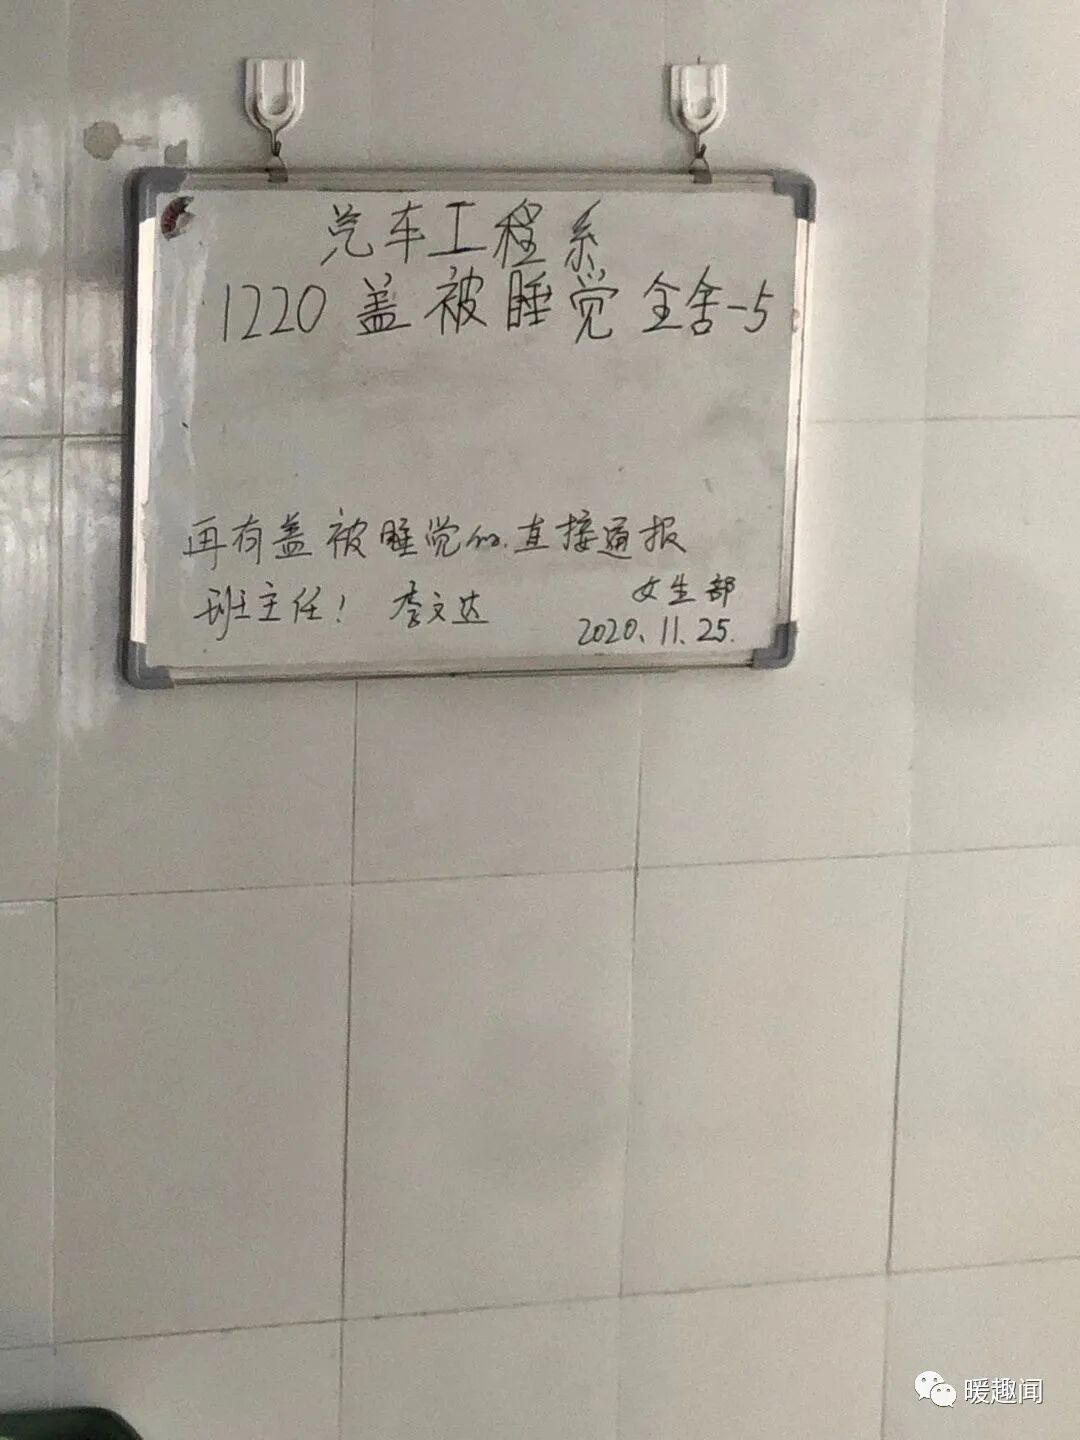 汽车工程系
1220 盖被睡觉 全舍-5
再有盖被睡觉的.直接通报
班主任! 李文达
女生部
2020.11.25.
暖趣闻